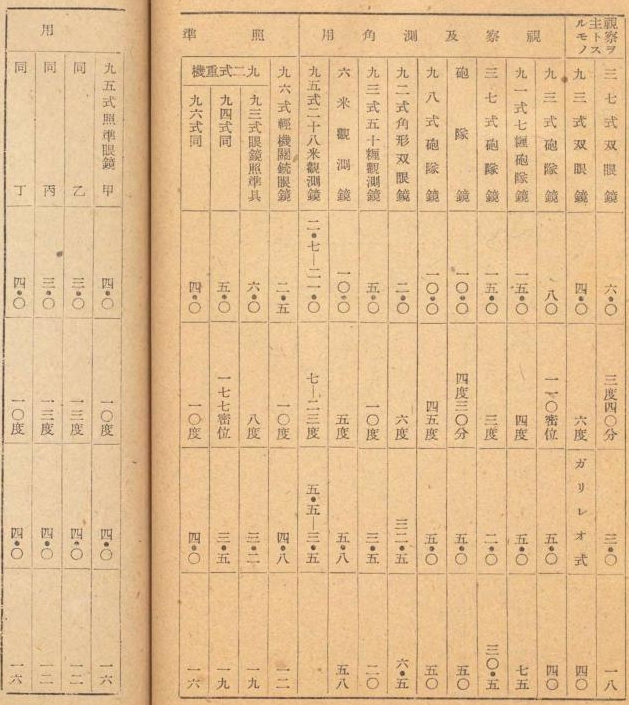 視察ヲ主トスルモノ
三七式双眼鏡 六•〇 三度四〇分 三•〇 一八
九三式双眼鏡 四•〇 六度 ガリレオ式 四〇
視察及測角用
九三式砲隊鏡 八〇 一一〇密位 五•〇 四〇
九一式七糎砲隊鏡 一五•〇 四度 五•〇 七五
三七式砲隊鏡 一五•〇 三度 二•〇 三〇•五
砲隊鏡 一〇•〇 四度三〇分 五•〇 五〇
九八式砲隊鏡 一〇•〇 四五度 五•〇 五〇
九二式角形双眼鏡 二•〇 六度 三二•五 六•五
九三式五十糎觀測鏡 五•〇 一〇度 三•五 二〇
六米觀測鏡 一〇•〇 五度 五•八 五八
九五式二十八米觀測鏡 二•七—二一•〇 七—二三度 五•五—三•五
照準用
九六式輕機關銃眼鏡 二•五 一〇度 四•八 一二
九二式重機
九三式眼鏡照準具 六•〇 八度 三•二 一九
九四式同 五•〇 一七七密位 三•五 一九
九六式同 四•〇 一〇度 四•〇 一六
九五式照準眼鏡 甲 四•〇 一〇度 四•〇 一六
同 乙 三•〇 一三度 四•〇 一二
同 丙 三•〇 一三度 四•〇 一二
同 丁 四•〇 一〇度 四•〇 一六